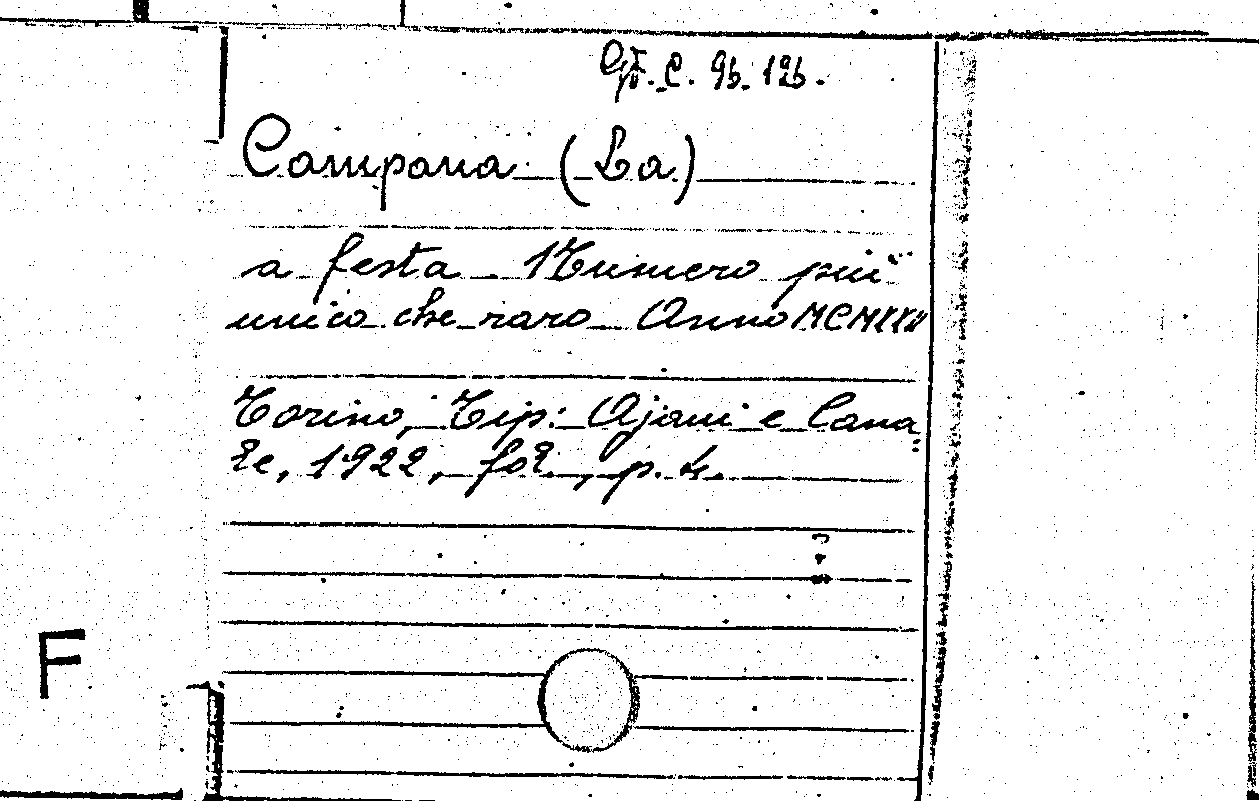 Op. C. 96. 126.
Campana (La)
a festa Numero più
unico che raro Anno MCMXXII
Torino, Tip: Ajani e Cana
le, 1922, fol., p. 4.
F